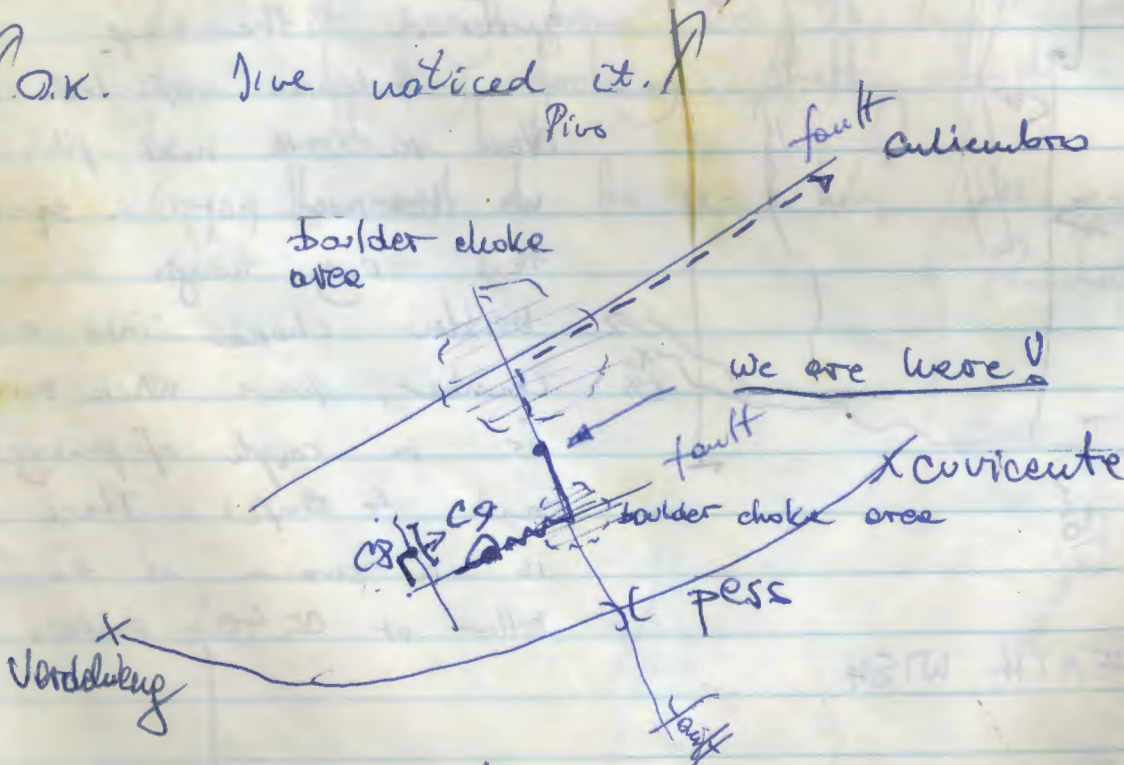 O.K. I've noticed it.
Pivo
fault
culiembro
boulder choke
area
we are here!
fault
x cuvicente
boulder choke area
C9
C8
pess
x
fault